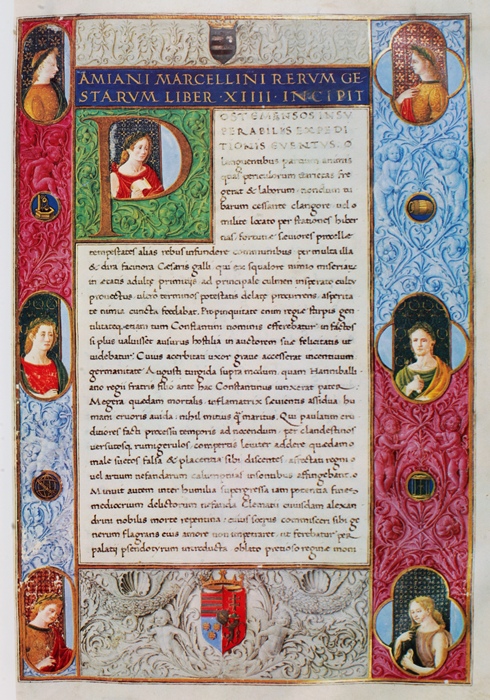 AMIANI MARCELLINI RERVM GE
STARVM LIBER · XIIII · INCIPIT
P
OST EMENSOS INSV
PERABILIS EXPEDI
TIONIS EVENTVS
languentibus partium animis
quas periculorum varietas fre
gerat & laborum: nondum tu
barum cessante clangore uel
milite locato per stationes hiber
nas: fortunae
tempestates alias rebus infundere communibus per multa illa
& dira facinora Caesaris galli qui ex squalore nimio miseriarum
in aetatis adultae primitiis ad principale culmen insperato
prouectus ultro terminos potestatis delatae procurrens asperita
te nimia cuncta foedabat. Propinquitate enim regiae stirpis gen
tilitateque etiam tum Constantini nominis efferebatur in fastos
si plus ualuisset ausurus hostilia in auctorem suae felicitatis ut
uidebatur. Cuius acerbitati uxor graue accesserat incentiuum
germanitate Augusti turgida supra modum quam Hanniballi
ano regi fratris filio ante hac Constantinus iunxerat pater.
Megera quaedam mortalis inflamatrix saeuientis assidua hu
mani cruoris auida nihil mitius maritus. Qui paulatim eru
ditiores facti processu temporis ad nocendum per clandestinos
uersutosque rumigerulos compertis leuiter addere quaedam
male suetos falsa & placentia sibi discentes affectati regni
uel artium nefandarum calumnias insontibus affingebant.
autem inter humilia supergressa iam potentia fines
mediocrium delictorum nefanda Clematii cuiusdam alexan
drini nobilis morte repentina: cuius socrus misceri sibi ge
nerum flagrans eius amore non impetraret ut ferebatur per
palatii introducta oblato pretioso reginae moni